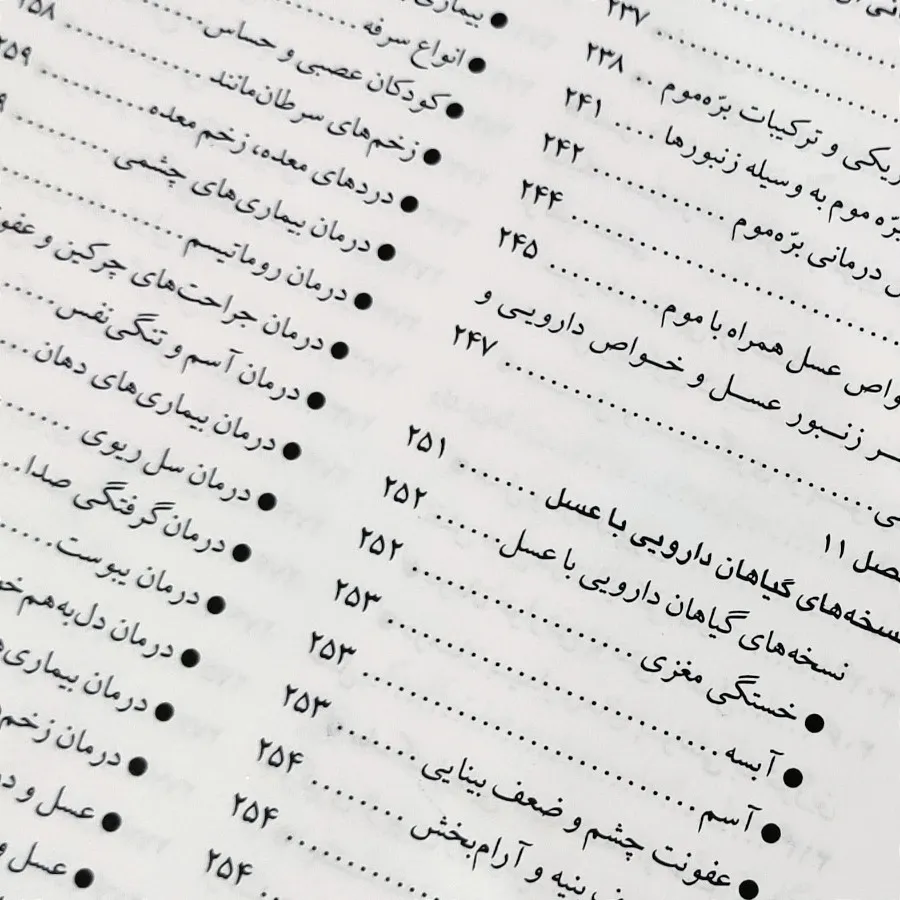 ۲۳۷
ترکیبات برّه‌موم .. ۲۳۸
برّه موم به وسیله زنبورها .... ۲۴۱
درمانی برّه‌موم ............ ۲۴۲
............ ۲۴۴
عسل همراه با موم .......... ۲۴۵
زنبور عسل و خواص دارویی و
............ ۲۴۷
۱۱
نسخه‌های گیاهان دارویی با عسل ...... ۲۵۱
نسخه‌های گیاهان دارویی با عسل ..... ۲۵۲
● خستگی مغزی ............ ۲۵۲
● آبسه ............ ۲۵۳
● آسم ............ ۲۵۳
● عفونت چشم و ضعف بینایی ...... ۲۵۳
بنیه و آرام‌بخش ........ ۲۵۴
............ ۲۵۴
۲۵۴
● انواع سرفه ........
● کودکان عصبی و حساس ........
● زخم‌های سرطان‌مانند ........ ۲۵۸
● دردهای معده، زخم معده ........ ۲۵۹
● درمان بیماری‌های چشمی ........
● درمان روماتیسم ........
● درمان جراحت‌های چرکین و
● درمان آسم و تنگی‌نفس ......
● درمان بیماری‌های دهان ...
● درمان سل ریوی ........
● درمان گرفتگی صدا ...
● درمان یبوست ......
● درمان دل‌به‌هم
● درمان بیماری
● درمان
● عسل و
● عسل و